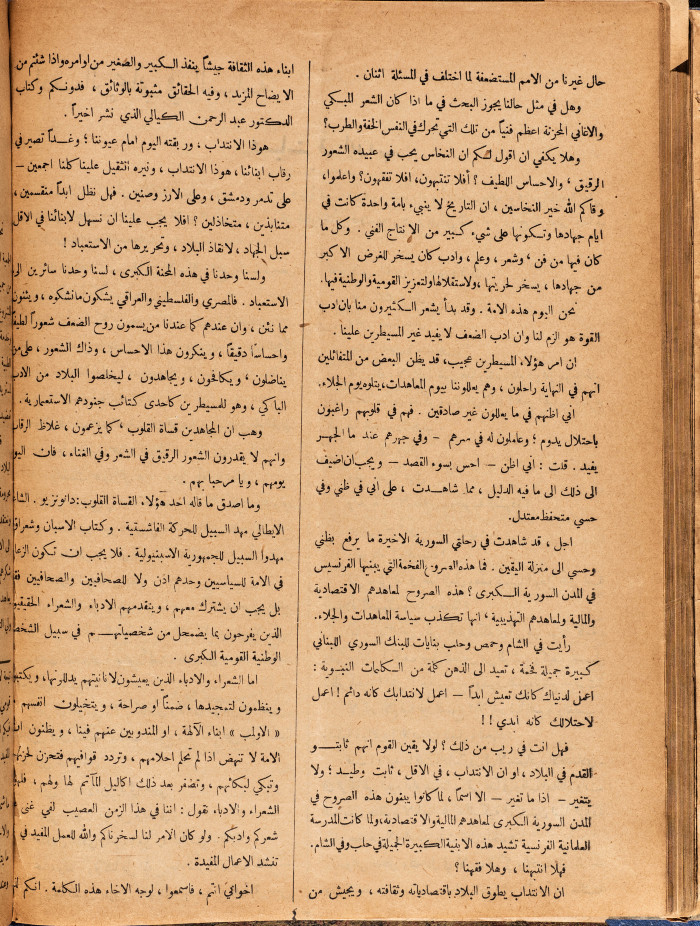 حال غيرنا من الامم المستضعفة لما اختلف في المسئلة اثنان .
وهل في مثل حالنا يجوز البحث في ما اذا كان الشعر المبكي
والاغاني المحزنة اعظم فنياً من تلك التي تحرك في النفس الخفة والطرب؟
وهلا يكفي ان اقول لكم ان النخاس يحب في عبيده الشعور
الرقيق ، والاحساس اللطيف ؟ أفلا تنتبهون، افلا تفقهون؟ واعلموا،
وقاكم الله خير النخاسين ، ان التاريخ لا ينبيء بامة واحدة كانت في
ايام جهادها وتكونها على شيء كبير من الانتاج الفني . وكل ما
كان فيها من فن ، وشعر ، وعلم ، وادب كان يسخر للغرض الاكبر
من جهادها ، يسخر لحريتها، ولاستقلالها ولتعزيز القومية والوطنية فيها.
نحن اليوم هذه الامة . وقد بدأ يشعر الكثيرون منا بان ادب
القوة هو الزم لنا وان ادب الضعف لا يفيد غير المسيطرين علينا .
ان امر هؤلاء المسيطرين عجيب، قد يظن البعض من المتفائلين
انهم في النهاية راحلون ، وهم يعللوننا بيوم المعاهدات، يتلوه يوم الجلاء.
اني اظنهم في ما يعللون غير صادقين . فهم في قلوبهم راغبون
باحتلال يدوم ؛ وعاملون له في سرهم – وفي جهرهم عند ما الجهر
يفيد . قلت : اني اظن – احس بسوء القصد – ويجب ان اضيف
الى ذلك الى ما فيه الدليل ، مما شاهدت ، على اني في ظني وفي
حسي متحفظ معتدل.
اجل ، قد شاهدت في رحلتي السورية الاخيرة ما يرفع بظني
وحسي الى منزلة اليقين . فما هذه الصروح الفخمة التي يبنيها الفرنسيس
في المدن السورية الكبرى ؟ هذه الصروح لمعاهدهم الاقتصادية
والمالية ولمعاهدهم التهذيبية ، انها تكذب سياسة المعاهدات والجلاء.
رأيت في الشام وحمص وحلب بنايات للبنك السوري اللبناني
كبيرة جميلة فخمة ، تعيد الى الذهن كلمة من الكلمات النبوية :
اعمل لدنياك كانك تعيش ابداً – اعمل لانتدابك كانه دائم ! اعمل
لاحتلالك كانه ابدي ! !
فهل انت في ريب من ذلك ؟ لولا يقين القوم انهم ثابتو
القدم في البلاد ، او ان الانتداب ، في الاقل ، ثابت وطيد ؛ ولا
يتغير – اذا ما تغير – الا اسماً ، لما كانوا يبنون هذه الصروح في
المدن السورية الكبرى لمعاهدهم المالية والاقتصادية، ولما كانت المدرسة
العلمانية الفرنسية تشيد هذه الابنية الكبيرة الجميلة في حلب وفي الشام.
فهلا انتبهنا ، وهلا فقهنا ؟
ان الانتداب يطوق البلاد باقتصادياته وثقافته ، ويجيش من
ابناء هذه الثقافة جيشاً ينفذ الكبير والصغير من اوامره واذا شئتم من
الايضاح المزيد ، وفيه الحقائق مثبوتة بالوثائق ، فدونكم وكتاب
الدكتور عبد الرحمن الكيالي الذي نشر اخيراً .
هوذا الانتداب ، وربقته اليوم امام عيوننا ؛ وغداً تصير في
رقاب ابنائنا ، هوذا الانتداب ، ونيره الثقيل علينا كلنا اجمعين –
على تدمر ودمشق ، وعلى الارز وصنين . فهل نظل ابداً منقسمين ،
متنابذين ، متخاذلين ؟ افلا يجب علينا ان نسهل لابنائنا في الاقل
سبل الجهاد ، لانقاذ البلاد ، وتحريرها من الاستعباد !
ولسنا وحدنا في هذه المحنة الكبرى ، لسنا وحدنا سائرين الى
الاستعباد . فالمصري والفلسطيني والعراقي يشكون ما نشكوه ، ويئنون
مما نئن ، وان عندهم كما عندنا من يسمون روح الضعف شعوراً لطيفاً
واحساساً دقيقاً ، وينكرون هذا الاحساس ، وذاك الشعور ، على من
يناضلون ، ويكافحون ، ويجاهدون ، ليخلصوا البلاد من الادب
الباكي ، وهو للمسيطرين كاحدى كتائب جنودهم الاستعمارية .
وهب ان المجاهدين قساة القلوب ، كما يزعمون ، غلاظ الرقاب
وانهم لا يقدرون الشعور الرقيق في الشعر وفي الغناء ، فان اليوم
يومهم ، ويا مرحبا بهم .
وما اصدق ما قاله احد هؤلاء القساة القلوب : دانونزيو . الشاعر
الايطالي مهد السبيل للحركة الفاشستية . وكتاب الاسبان وشعراؤ
مهدوا السبيل للجمهورية الاسبنيولية . فلا يجب ان تكون الزعامة
في الامة للسياسيين وحدهم اذن ولا للصحافيين والصحافيين فقط
بل يجب ان يشترك معهم ، ويتقدمهم الادباء والشعراء الحقيقيون
الذين يفرحون بما يضمحل من شخصياتهم في سبيل الشخصية
الوطنية القومية الكبرى .
اما الشعراء والادباء الذين يعيشون لانانيتهم يدللونها ، ويكتبون
وينظمون لتمجيدها ، ضمناً او صراحة ، ويتخيلون انفسهم في
« الاولمب » ابناء الآلهة ، او المندوبين عنهم فينا ، ويظنون ان
الامة لا تنهض اذا لم تحلم احلامهم ، وتردد قوافيهم فتحزن لحزنهم
وتبكي لبكائهم ، وتضفر بعد ذلك اكاليل المآتم لها ولهم ،
الشعراء والادباء نقول : اننا في هذا الزمن العصيب لفي غنى عن
شعركم وادبكم . ولو كان الامر لنا لسخرناكم والله للعمل المفيد في
تنشد الاعمال المفيدة .
اخواني انتم ، فاسمعوا ، لوجه الاخاء هذه الكلمة . انكم